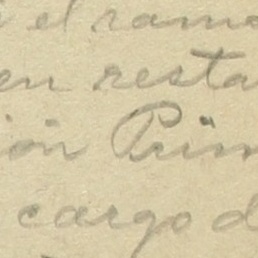 el ramo
en resta
ión Prim
cargo d